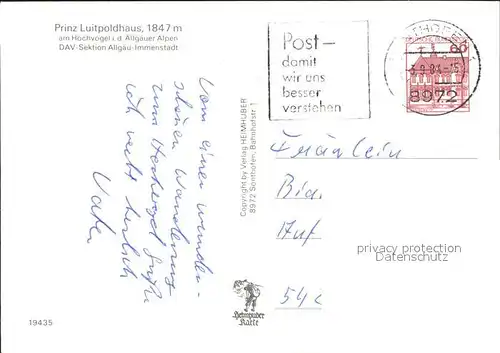 Prinz Luitpoldhaus, 1847 m
am Hochvogel i. d. Allgäuer Alpen
DAV-Sektion Allgäu-Immenstadt
Von einer wunder-
schönen Wanderung
zum Hochvogel grüßt
dich recht herzlich
Vater
19435
Copyright by Verlag HEIMHUBER
8972 Sonthofen, Bahnhofstr. 1
Heimhuber
Karte
Post –
damit
wir uns
besser
verstehen
THOFE
60
8972
Fräulein
54c
privacy protection
Datenschutz